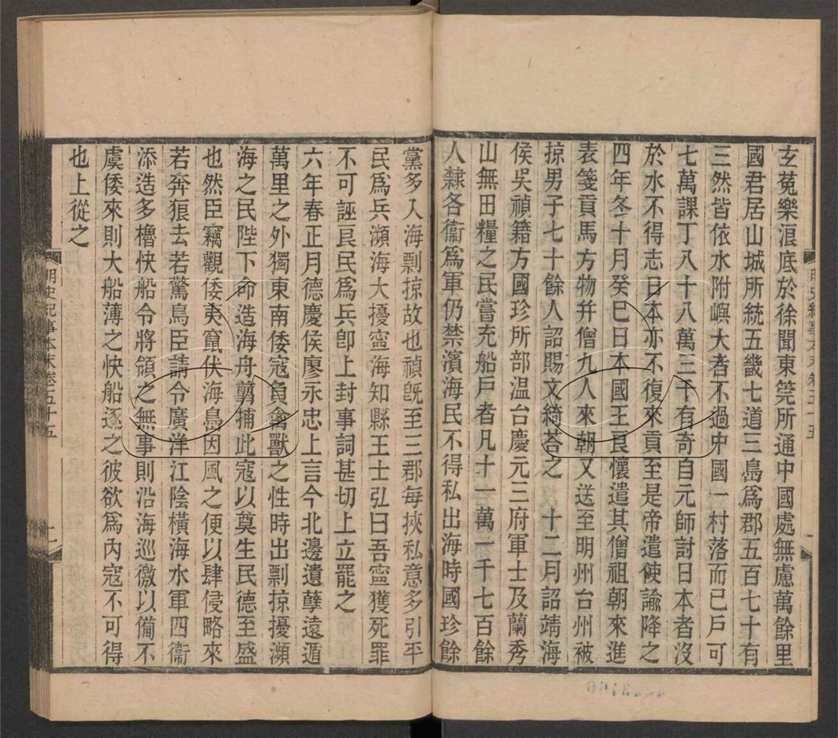 玄菟樂浪底於徐聞東筦所通中國處無慮萬餘里
國君居山城所統五畿七道三島爲郡五百七十有
三然皆依水附嶼大者不過中國一村落而已戶可
七萬課丁八十八萬三千有奇自元師討日本者沒
於水不得志日本亦不復來貢至是帝遣使諭降之
四年冬十月癸巳日本國王良懷遣其僧祖朝來進
表箋貢馬方物并僧九人來朝又送至明州台州被
掠男子七十餘人詔賜文綺荅之　十二月詔靖海
侯吳禎籍方國珍所部温台慶元三府軍士及蘭秀
山無田糧之民嘗充船戶者凡十一萬一千七百餘
人隸各衞爲軍仍禁濱海民不得私出海時國珍餘
明史紀事本末卷五十五
黨多入海剽掠故也禎旣至三郡每挾私意多引平
民爲兵瀕海大擾寧海知縣王士弘曰吾寧獲死罪
不可誣良民爲兵卽上封事詞甚切上立罷之
六年春正月德慶侯廖永忠上言今北邊遺孽遠遁
萬里之外獨東南倭寇負禽獸之性時出剽掠擾瀕
海之民陛下命造海舟翦捕此寇以奠生民德至盛
也然臣竊觀倭夷竄伏海島因風之便以肆侵略來
若奔狼去若驚鳥臣請令廣洋江陰橫海水軍四衞
添造多櫓快船令將領之無事則沿海巡徼以備不
虞倭來則大船薄之快船逐之彼欲爲内寇不可得
也上從之
明史紀事本末卷五十五